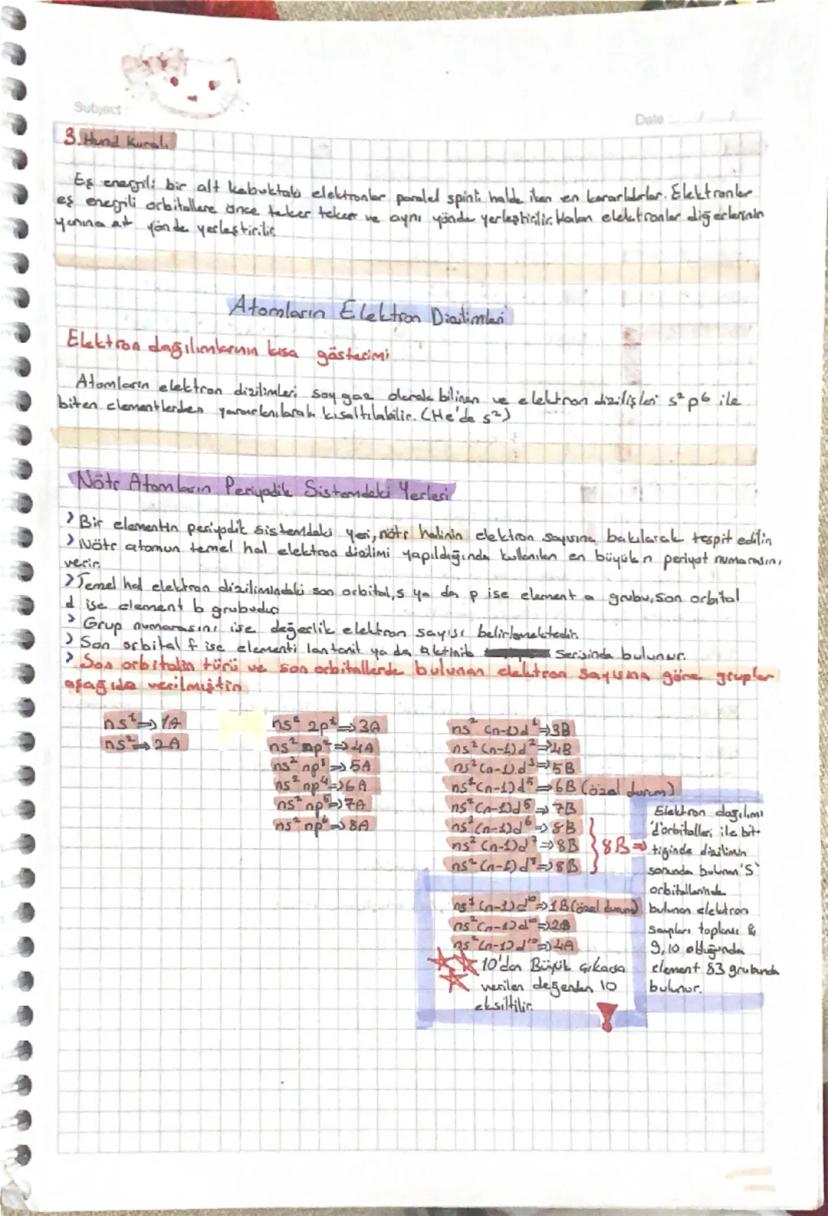 Subject:
Date / /
3. Hund Kuralı
Eş enerjili bir alt kabuktaki elektronlar paralel spinli halde iken en kararlıdırlar. Elektronlar
eş enerjili orbitallere önce teker teker ve aynı yönde yerleştirilir. Kalan elektronlar diğerlerinin
yanına zıt yönde yerleştirilir.
Atomların Elektron Dizilimleri
Elektron dağılımlarının kısa gösterimi
Atomların elektron dizilimleri soygaz olarak bilinen ve elektron dizilişleri s² p⁶ ile
biten elementlerden yararlanılarak kısaltılabilir. (He'de s²)
Nötr Atomların Periyodik Sistemdeki Yerleri
> Bir elementin periyodik sistemdeki yeri, nötr halinin elektron sayısına bakılarak tespit edilir
> Nötr atomun temel hal elektron dizilimi yapıldığında kullanılan en büyük n periyot numarasını
verir.
> Temel hal elektron dizilimindeki son orbital, s ya da p ise element a grubu, son orbital
d ise element b grubudur
> Grup numarasını ise değerlik elektron sayısı belirlemektedir.
> Son orbital f ise elementi lantanit ya da aktinit serisinde bulunur.
> Son orbitalin türü ve son orbitallerde bulunan elektron sayısına göre gruplar
aşağıda verilmiştir.
ns¹ ⇒ 1A
ns² ⇒ 2A
ns² 2p¹ ⇒ 3A
ns² np² ⇒ 4A
ns² np³ ⇒ 5A
ns² np⁴ ⇒ 6A
ns² np⁵ ⇒ 7A
ns² np⁶ ⇒ 8A
ns² (n-1)d¹ ⇒ 3B
ns² (n-1)d² ⇒ 4B
ns² (n-1)d³ ⇒ 5B
(n-1)d⁵ ⇒ 6B (özel durum)
ns² (n-1)d⁵ ⇒ 7B
ns² (n-1)d⁶ ⇒ 8B
ns² (n-1)d⁷ ⇒ 8B
ns² (n-1)d⁸ ⇒ 8B
8B ⇒
Elektron dağılımı
'd' orbitalleri ile bit-
tiğinde dizilimin
sonunda bulunan 'S'
orbitallerinde
bulunan elektron
sayıları toplamı 8,
9, 10 olduğunda
element 83 grubunda
bulunur.
ns¹ (n-1)d¹⁰ ⇒ 1B (özel durum)
ns² (n-1)d¹⁰ ⇒ 2B
ns² (n-1)d¹⁰ ⇒ 4A
10'dan Büyük çıkarsa
verilen değerden 10
eksiltilir.